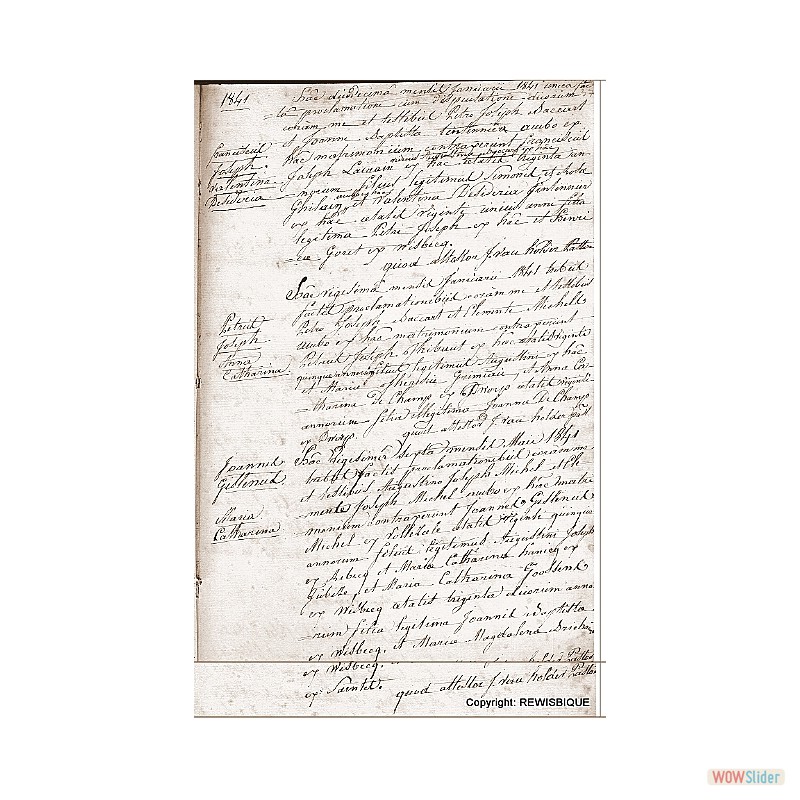 1841
Hac duodecima mensis Januarii 1841 unica fac
= ta proclamatione cum dispensatione duorum
coram me et testibus Petro Joseph Baccart
et Joanne Baptista ambo ex
hac matrimonium contraxerunt Franciscus
Joseph ex hac aetatis triginta
= norum filius legitimus Simonis et Rosa
Ghislain et Valentina Desideria
ex hac aetatis viginti unius anni filia
legitima Petri Joseph ex hac et Henri
= ca Goret ex Wisbecq.
quod attestor J. Van holder Pastor
Franciscus
Joseph.
Valentina
Desideria
Hac vigesima mensis Januarii 1841 tribus
factis proclamationibus coram me et testibus
Petro Joseph Baccart et Clemente Michels
ambo ex hac matrimonium contraxerunt
Petrus Joseph Thibaut ex hac aetatis viginti
quinque annorum filius legitimus Augustini ex hac
et Mariae et Anna Ca=
= tharina De Champ ex aetatis viginti
annorum filia illegitima Joanna De Champ
ex
quod attestor J. Van holder past
Petrus
Joseph.
Anna
Catharina.
Hac vigesima sexta mensis Maii 1841
tribus factis proclamationibus coram me
et testibus Augustino Joseph Michel et Cle
= mente Joseph Michel ambo ex hac matri
monium contraxerunt Joannes Gislenus
Michel ex aetatis viginti quinque
annorum filius legitimus Augustini Joseph
ex Rebecq et Maria Catharina ex
et Maria Catharina Goossens
ex Wisbecq aetatis triginta duorum anno
= rum filia legitima Joannis Baptista
ex Wisbecq. et Maria Magdalena
ex Wisbecq.
ex Saintes. quod attestor J. Van holder Pastor
Joannes
Gislenus
Maria
Catharina
Copyright: REWISBIQUE
WOWSlider